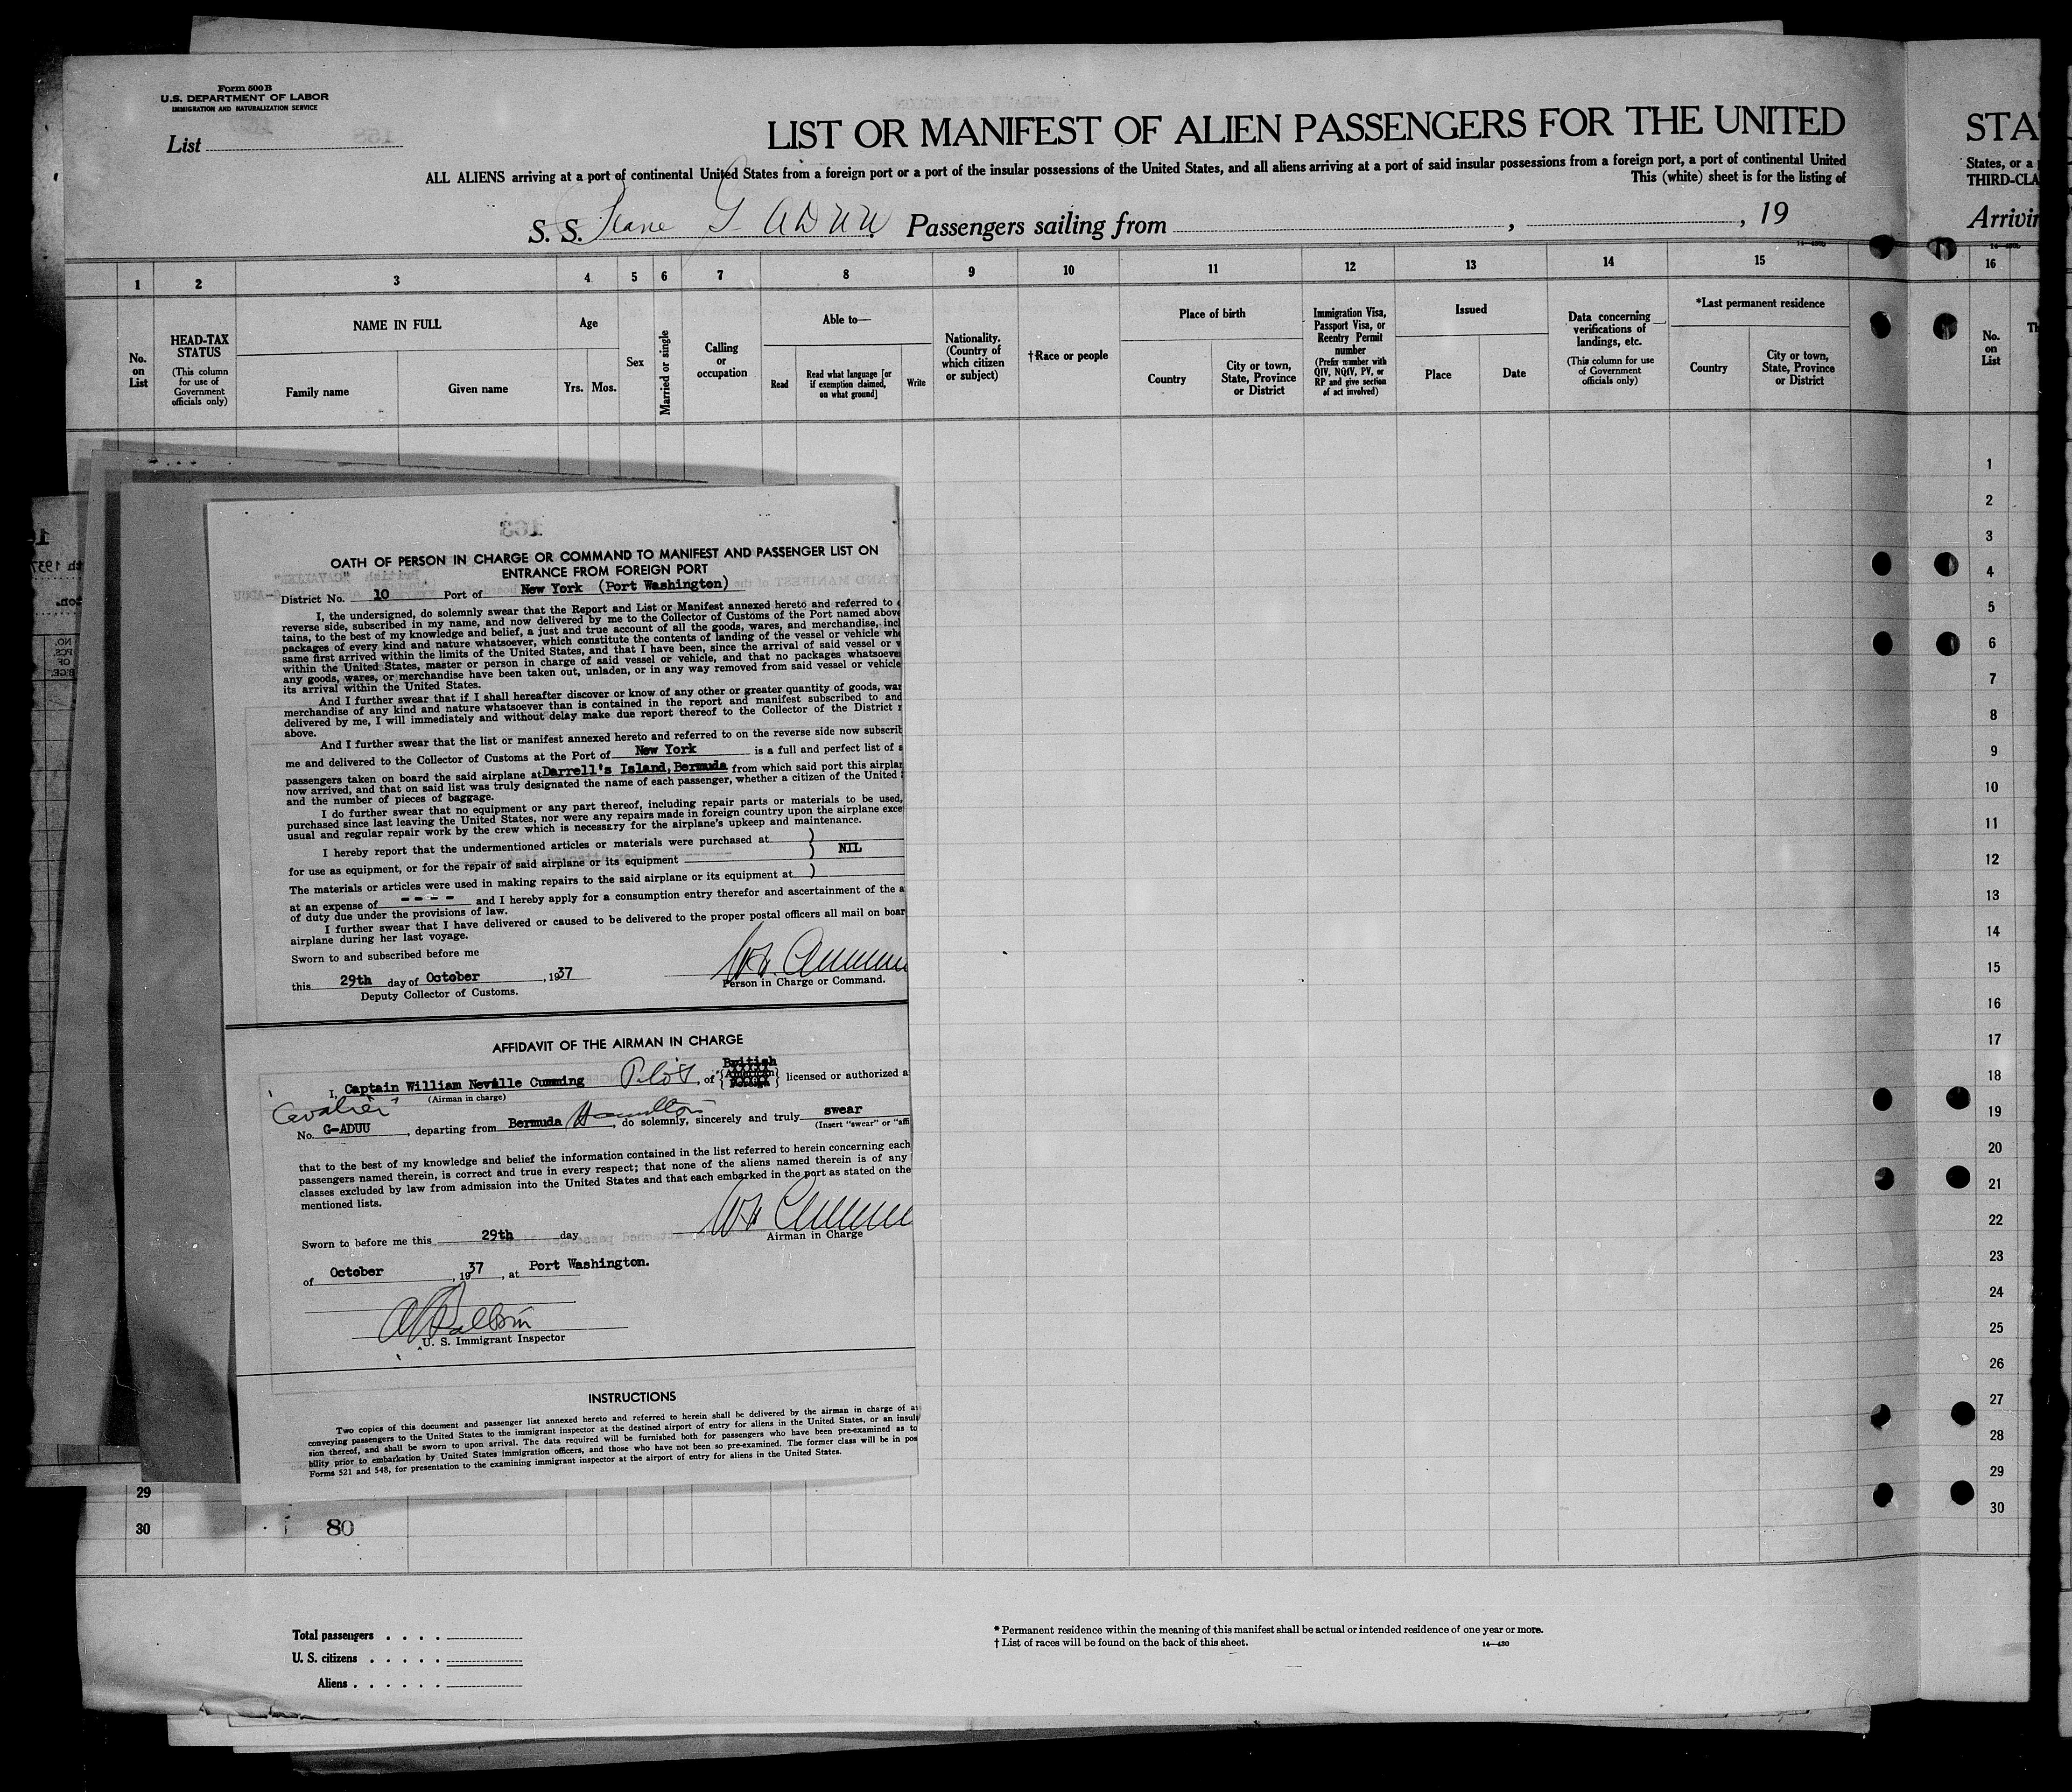 Form 500B
U.S. DEPARTMENT OF LABOR
IMMIGRATION AND NATURALIZATION SERVICE
List
LIST OR MANIFEST OF ALIEN PASSENGERS FOR THE UNITED
ALL ALIENS arriving at a port of continental United States from a foreign port or a port of the insular possessions of the United States, and all aliens arriving at a port of said insular possessions from a foreign port, a port of continental United
This (white) sheet is for the listing of
S. S. Plane G ADUU Passengers sailing from , , 19
STA
States, or a
THIRD-CLA
Arrivin
1 2 3 4 5 6 7 8 9 10 11 12 13 14 15 16
No. on List
HEAD-TAX STATUS
(This column for use of Government officials only)
NAME IN FULL
Family name
Given name
Age
Yrs.
Mos.
Sex
Married or single
Calling or occupation
Able to—
Read
Read what language [or if exemption claimed, on what ground]
Write
Nationality. (Country of which citizen or subject)
†Race or people
Place of birth
Country
City or town, State, Province or District
Immigration Visa, Passport Visa, or Reentry Permit number
(Prefix number with QIV, NQIV, PV, or RP and give section of act involved)
Issued
Place
Date
Data concerning verifications of landings, etc.
(This column for use of Government officials only)
*Last permanent residence
Country
City or town, State, Province or District
No. on List
1
2
3
4
5
6
7
8
9
10
11
12
13
14
15
16
17
18
19
20
21
22
23
24
25
26
27
28
29
30
OATH OF PERSON IN CHARGE OR COMMAND TO MANIFEST AND PASSENGER LIST ON
ENTRANCE FROM FOREIGN PORT
District No. 10 Port of New York (Port Washington)
I, the undersigned, do solemnly swear that the Report and List or Manifest annexed hereto and referred to
reverse side, subscribed in my name, and now delivered by me to the Collector of Customs of the Port named above
tains, to the best of my knowledge and belief, a just and true account of all the goods, wares, and merchandise, incl
packages of every kind and nature whatsoever, which constitute the contents of landing of the vessel or vehicle whe
same first arrived within the limits of the United States, and that I have been, since the arrival of said vessel or v
within the United States, master or person in charge of said vessel or vehicle, and that no packages whatsoever
any goods, wares, or merchandise have been taken out, unladen, or in any way removed from said vessel or vehicle
its arrival within the United States.
And I further swear that if I shall hereafter discover or know of any other or greater quantity of goods, war
merchandise of any kind and nature whatsoever than is contained in the report and manifest subscribed to and
delivered by me, I will immediately and without delay make due report thereof to the Collector of the District
above.
And I further swear that the list or manifest annexed hereto and referred to on the reverse side now subscrib
me and delivered to the Collector of Customs at the Port of New York is a full and perfect list of a
passengers taken on board the said airplane at Darrell's Island, Bermuda from which said port this airplan
now arrived, and that on said list was truly designated the name of each passenger, whether a citizen of the United
and the number of pieces of baggage.
I do further swear that no equipment or any part thereof, including repair parts or materials to be used,
purchased since last leaving the United States, nor were any repairs made in foreign country upon the airplane exce
usual and regular repair work by the crew which is necessary for the airplane's upkeep and maintenance.
I hereby report that the undermentioned articles or materials were purchased at
for use as equipment, or for the repair of said airplane or its equipment
NIL
The materials or articles were used in making repairs to the said airplane or its equipment at
at an expense of - - - - and I hereby apply for a consumption entry therefor and ascertainment of the a
of duty due under the provisions of law.
I further swear that I have delivered or caused to be delivered to the proper postal officers all mail on boar
airplane during her last voyage.
Sworn to and subscribed before me
this 29th day of October , 1937
Deputy Collector of Customs.
Person in Charge or Command.
AFFIDAVIT OF THE AIRMAN IN CHARGE
I, Captain William Neville Cumming Pilot, of British {American Foreign} licensed or authorized a
(Airman in charge)
Cavalier
No. G-ADUU , departing from Bermuda Hamilton , do solemnly, sincerely and truly swear
(Insert "swear" or "affi
that to the best of my knowledge and belief the information contained in the list referred to herein concerning each
passengers named therein, is correct and true in every respect; that none of the aliens named therein is of any
classes excluded by law from admission into the United States and that each embarked in the port as stated on the
mentioned lists.
Sworn to before me this 29th day
Airman in Charge
of October , 1937 , at Port Washington.
U. S. Immigrant Inspector
INSTRUCTIONS
Two copies of this document and passenger list annexed hereto and referred to herein shall be delivered by the airman in charge of a
conveying passengers to the United States to the immigrant inspector at the destined airport of entry for aliens in the United States, or an insul
sion thereof, and shall be sworn to upon arrival. The data required will be furnished both for passengers who have been pre-examined as to
bility prior to embarkation by United States immigration officers, and those who have not been so pre-examined. The former class will be in pos
Forms 521 and 548, for presentation to the examining immigrant inspector at the airport of entry for aliens in the United States.
29
30
80
Total passengers . . . .
U. S. citizens . . . . .
Aliens . . . . . .
* Permanent residence within the meaning of this manifest shall be actual or intended residence of one year or more.
† List of races will be found on the back of this sheet.
14—430